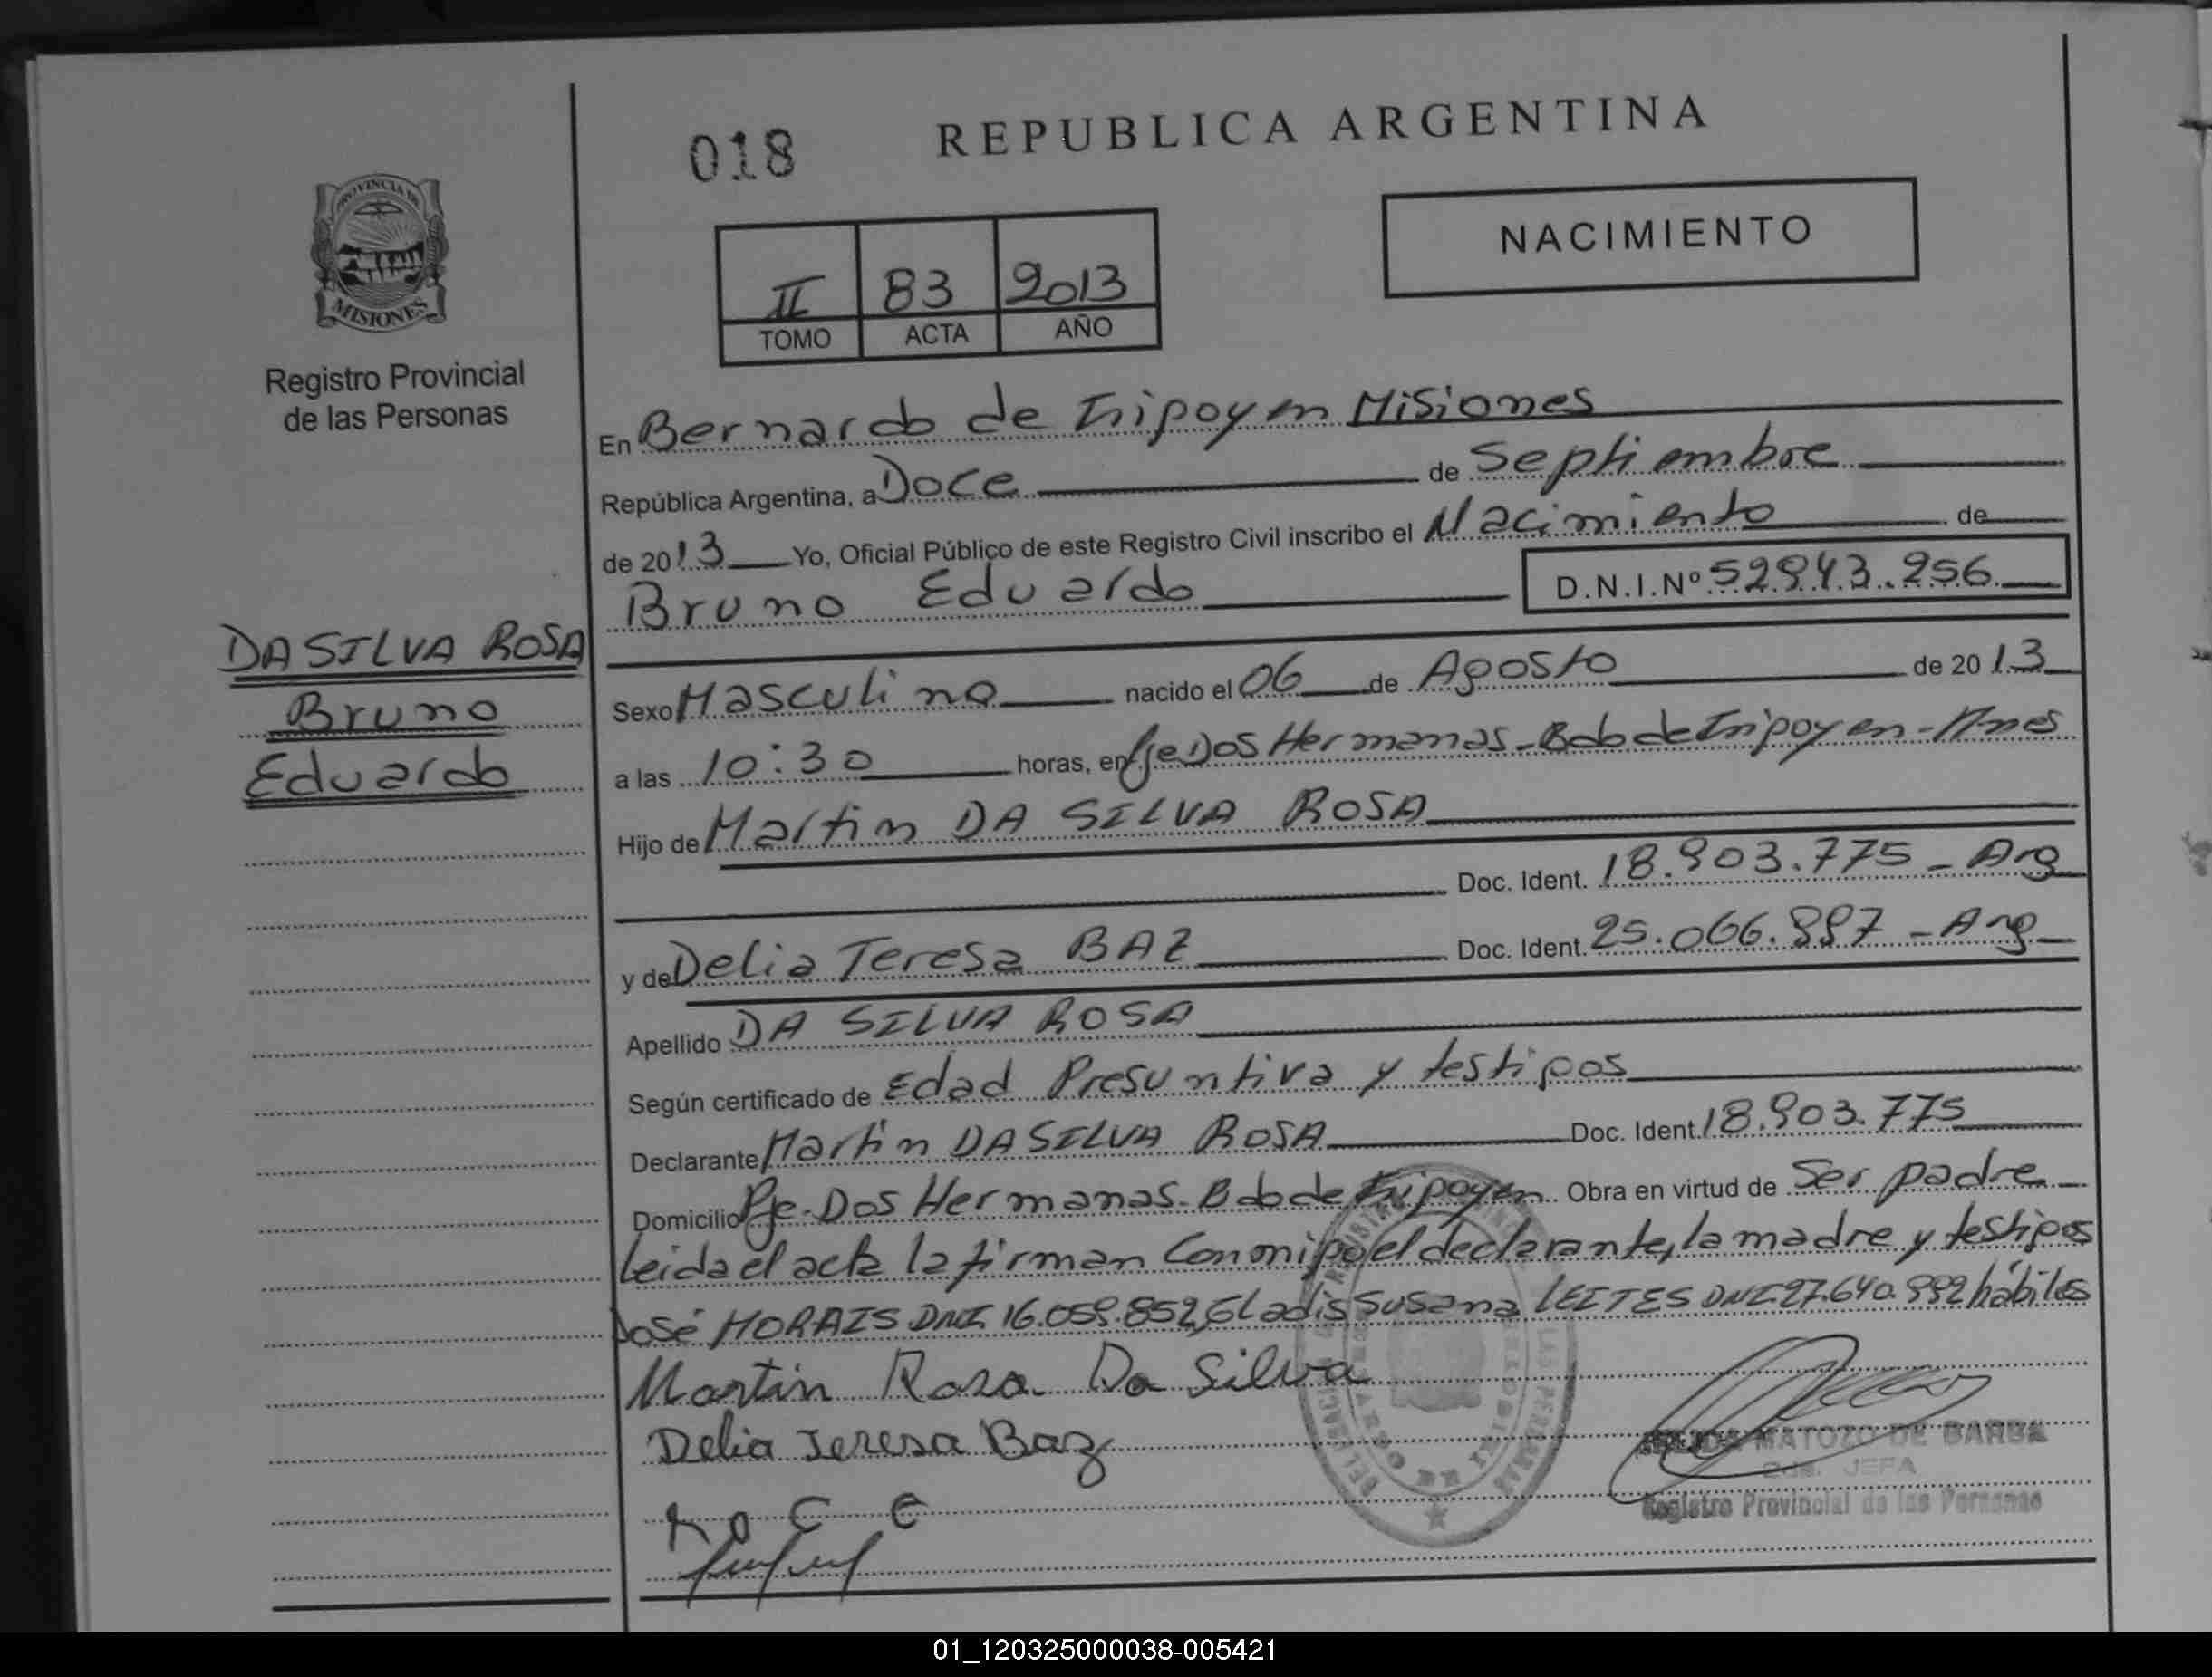 018
REPUBLICA ARGENTINA
PROVINCIA DE
MISIONES
Registro Provincial
de las Personas
NACIMIENTO
II 83 2013
TOMO ACTA AÑO
DA SILVA ROSA
Bruno
Eduardo
En Bernardo de Irigoyen Misiones
República Argentina, a Doce de Septiembre
de 2013 Yo, Oficial Público de este Registro Civil inscribo el Nacimiento de
Bruno Eduardo D.N.I.Nº 52.943.256
Sexo Masculino nacido el 06 de Agosto de 2013
a las 10:30 horas, en Pje Dos Hermanas - Bdo de Irigoyen - Mnes
Hijo de Martin DA SILVA ROSA
Doc. Ident. 18.903.775 - Arg
y de Delia Teresa BAZ Doc. Ident. 25.066.997 - Arg
Apellido DA SILVA ROSA
Según certificado de Edad Presuntiva y testigos
Declarante Martin DA SILVA ROSA Doc. Ident. 18.903.775
Domicilio Pje - Dos Hermanas - Bdo de Irigoyen Obra en virtud de Ser padre
Leida el acta la firman Conmigo el declarante, la madre y testigos
José MORAIS DNI 16.059.852, Gladis Susana LEITES DNI 27.640.992 hábiles
Martin Rosa Da Silva
Delia Teresa Baz
MATOZO DE BARBA
2da. JEFA
Registro Provincial de las Personas
01_120325000038-005421